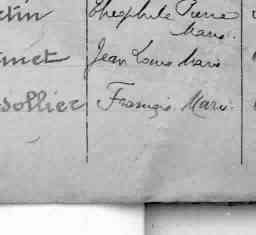 Théophile Pierre
Marie.
Jean Louis Marie
sollier François Marie